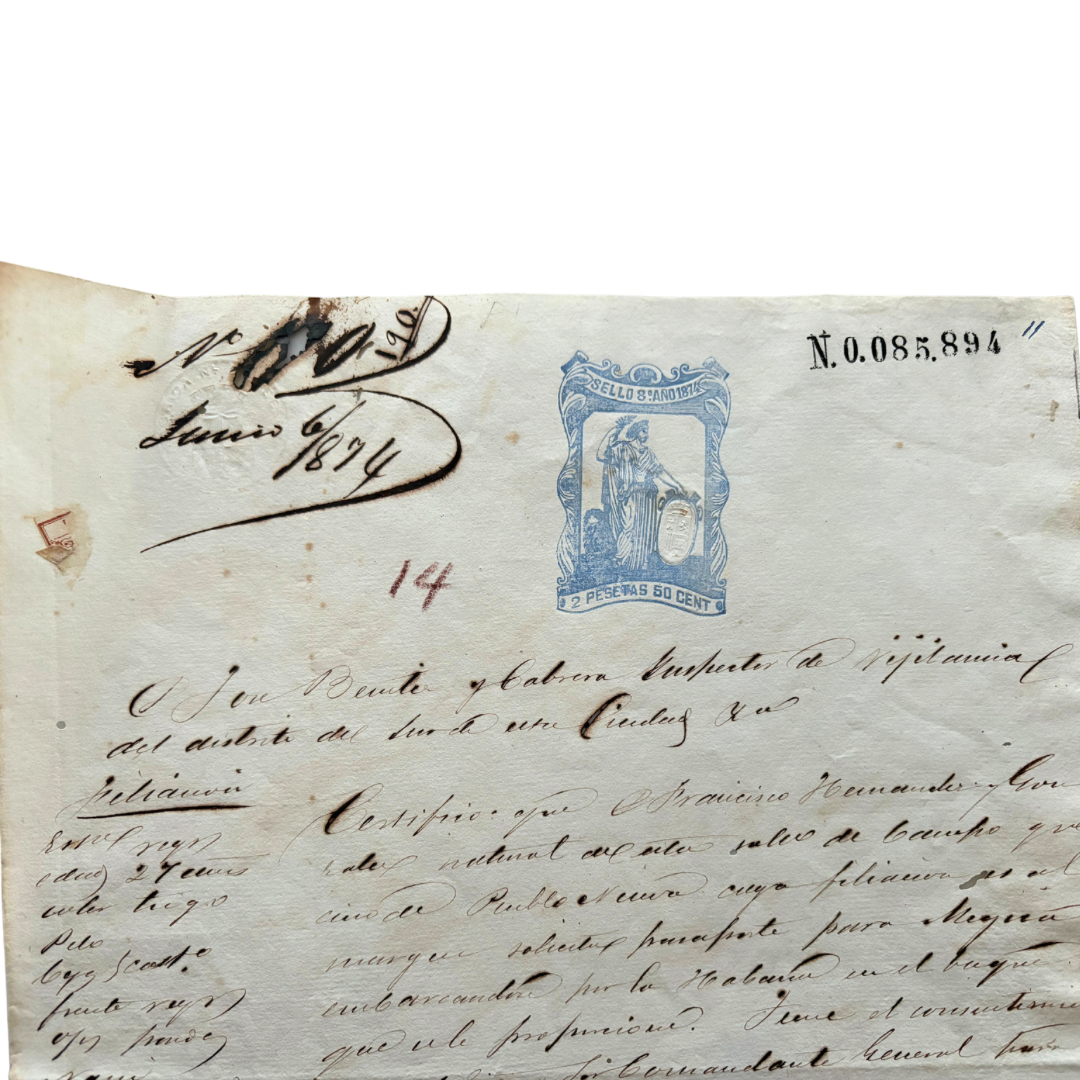 Nº
190.
Junio 6/874
N. 0.085,894
11
SELLO 8º AÑO 1874
2 PESETAS 50 CENT
14
D Jose Benitez y Cabrera Inspector de vijilancia
del distrito del Sur de esta Ciudad &a
Filiacion
Estra regr
edad 27 años
color trigo
Pelo
Cejas casto
frente regr
ojos pardos
Certifico: que D Francisco Hernandez y Gon
zalez natural de esta soltero de Campo y ve
cino de Pueblo Nuevo cuya filiacion es al
margen solicita pasaporte para Megico
embarcandose por la Habana en el buque
que se le proporcione. Tiene el consentimi
Sor Comandante General